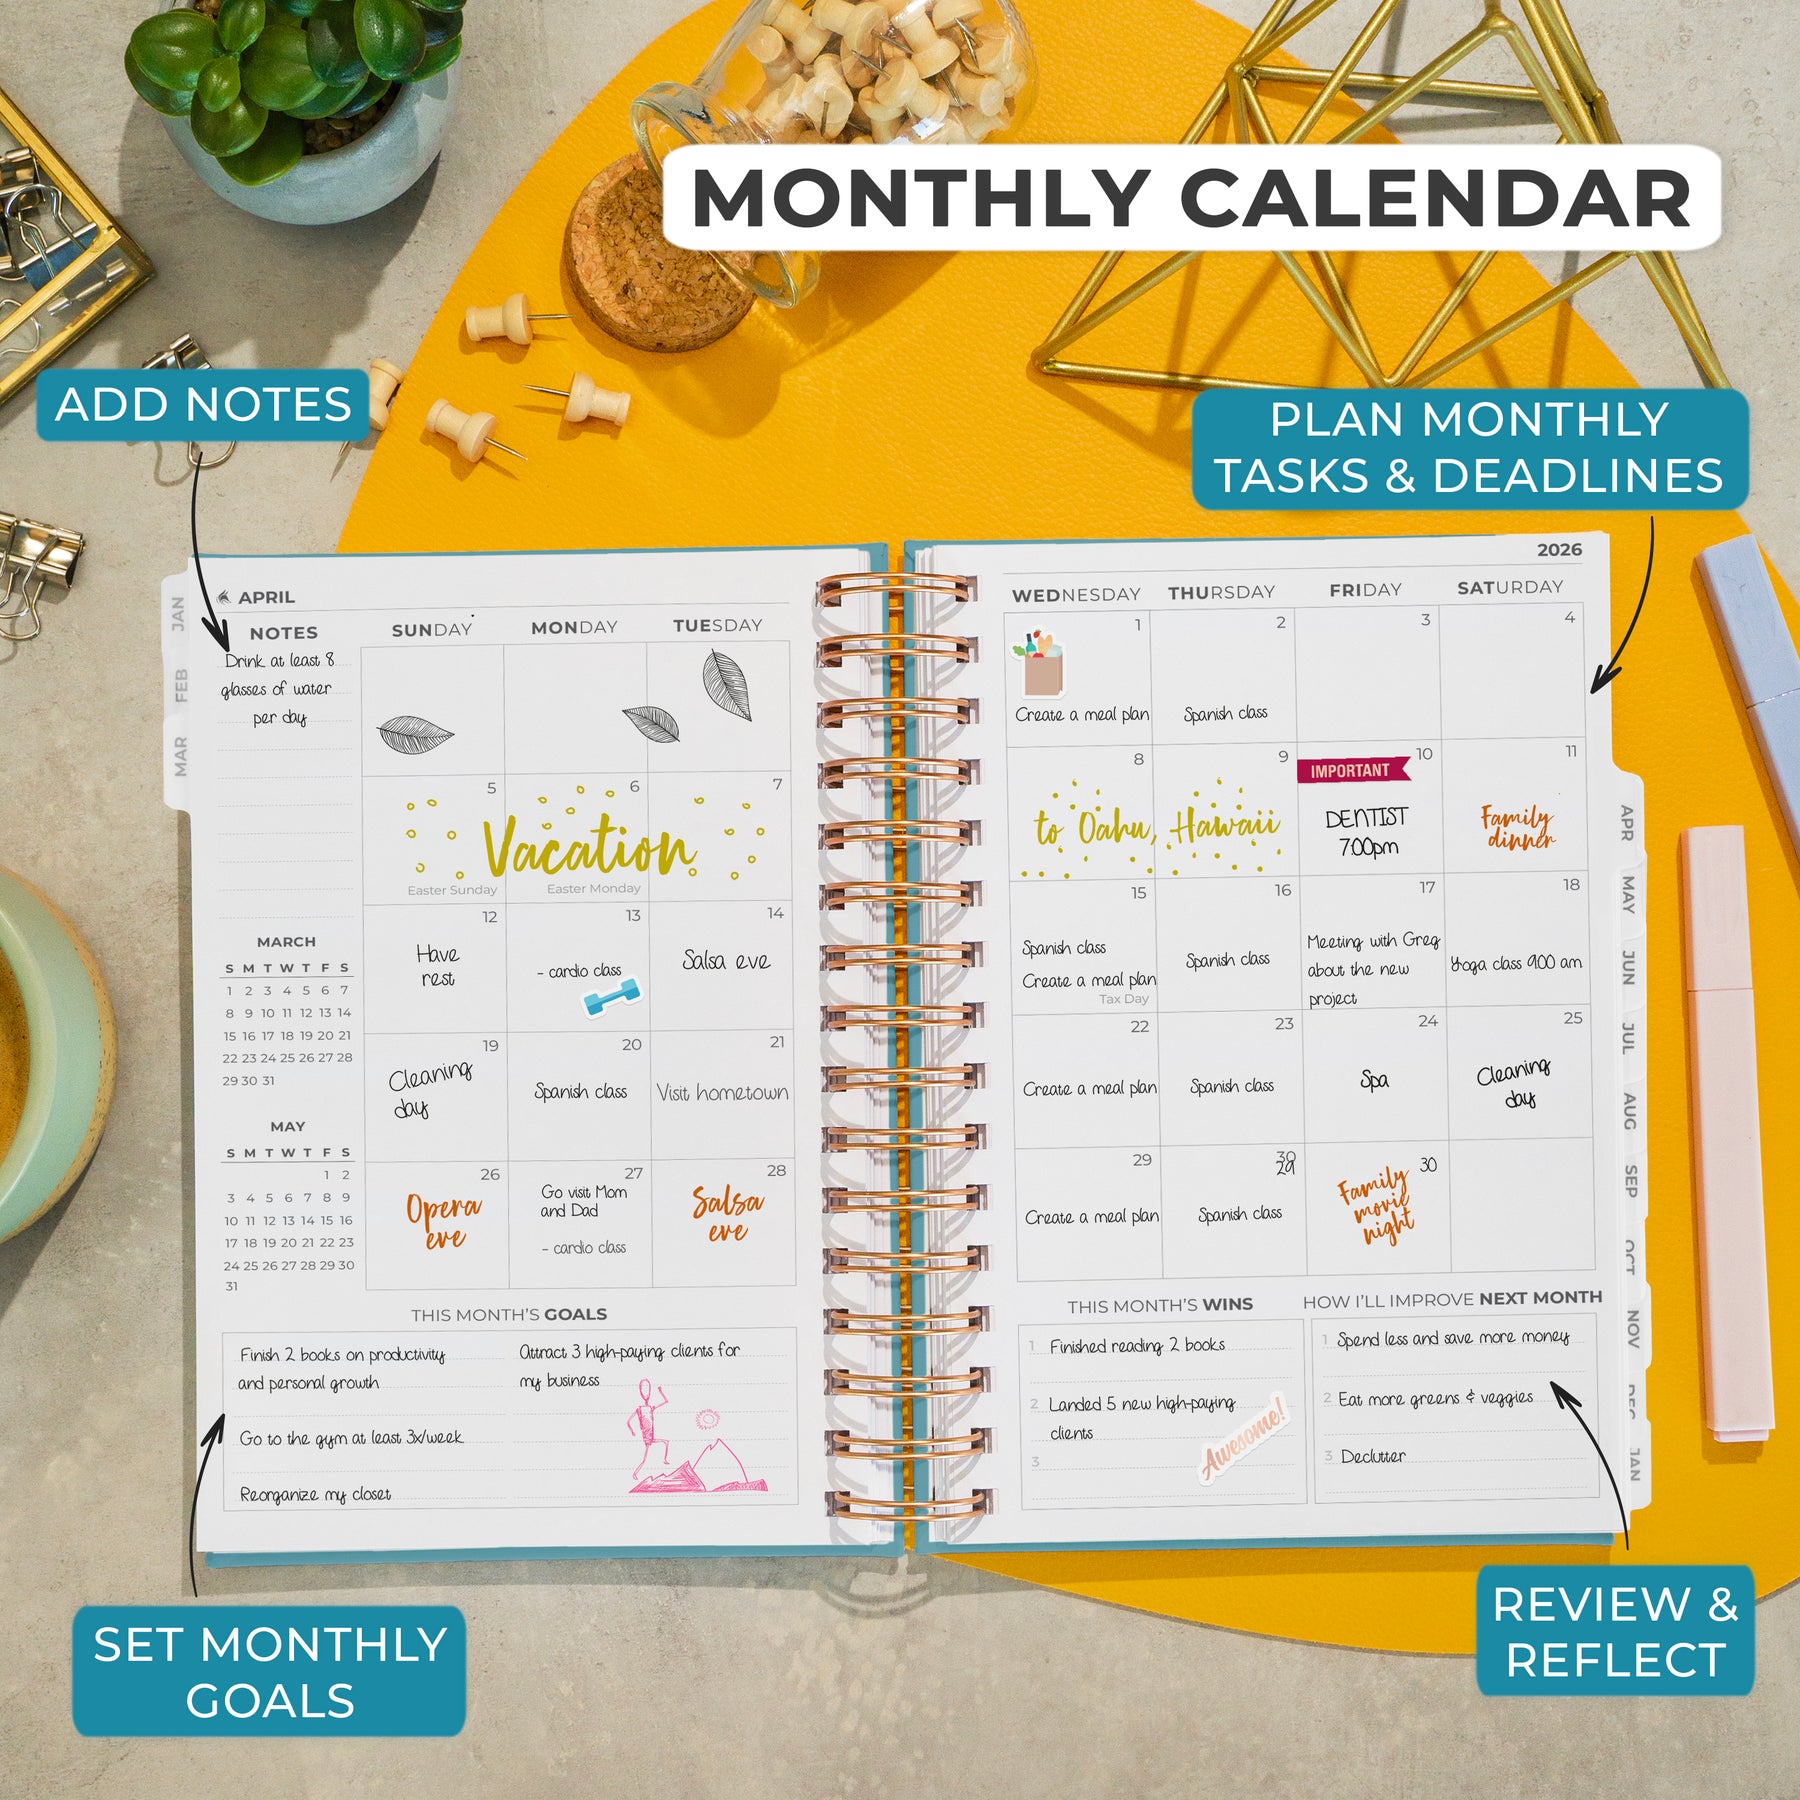 MONTHLY CALENDAR
ADD NOTES
PLAN MONTHLY
TASKS & DEADLINES
APRIL
2026
JAN
FEB
MAR
NOTES
Drink at least 8
glasses of water
per day
SUNDAY MONDAY TUESDAY
WEDNESDAY THURSDAY FRIDAY SATURDAY
1 2 3 4
Create a meal plan
Spanish class
5 6 7
Vacation
Easter Sunday
Easter Monday
8 9 10 11
to Oahu, Hawaii
IMPORTANT
DENTIST
7:00pm
Family
dinner
12 13 14
Have
rest
- cardio class
Salsa eve
15 16 17 18
Spanish class
Create a meal plan
Tax Day
Spanish class
Meeting with Greg
about the new
project
Yoga class 9:00 am
19 20 21
Cleaning
day
Spanish class
Visit hometown
22 23 24 25
Create a meal plan
Spanish class
Spa
Cleaning
day
26 27 28
Opera
eve
Go visit Mom
and Dad
- cardio class
Salsa
eve
29 30 30
29
Create a meal plan
Spanish class
Family
movie
night
MARCH
S M T W T F S
1 2 3 4 5 6 7
8 9 10 11 12 13 14
15 16 17 18 19 20 21
22 23 24 25 26 27 28
29 30 31
MAY
S M T W T F S
1 2
3 4 5 6 7 8 9
10 11 12 13 14 15 16
17 18 19 20 21 22 23
24 25 26 27 28 29 30
31
THIS MONTH'S GOALS
Finish 2 books on productivity
and personal growth
Go to the gym at least 3x/week
Reorganize my closet
Attract 3 high-paying clients for
my business
THIS MONTH'S WINS
1 Finished reading 2 books
2 Landed 5 new high-paying
clients
3
Awesome!
HOW I'LL IMPROVE NEXT MONTH
1 Spend less and save more money
2 Eat more greens & veggies
3 Declutter
APR
MAY
JUN
JUL
AUG
SEP
OCT
NOV
DEC
JAN
SET MONTHLY
GOALS
REVIEW &
REFLECT